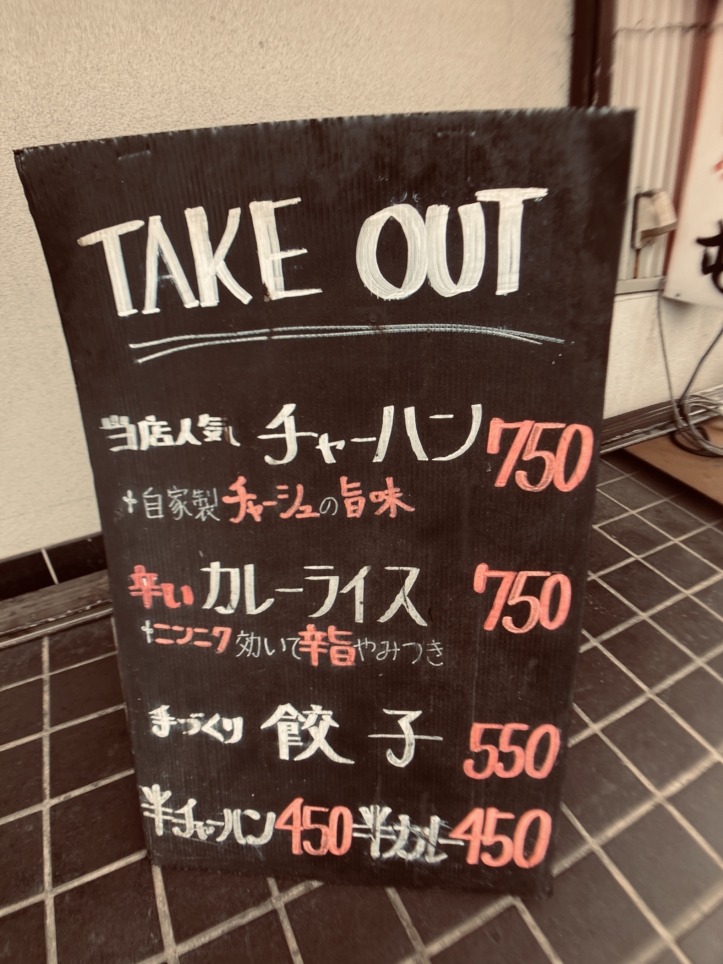 TAKE OUT
当店人気 チャーハン 750
自家製チャーシューの旨味
辛い カレーライス 750
ニンニク効いて辛旨やみつき
手づくり 餃子 550
半チャーハン450 半カレー450